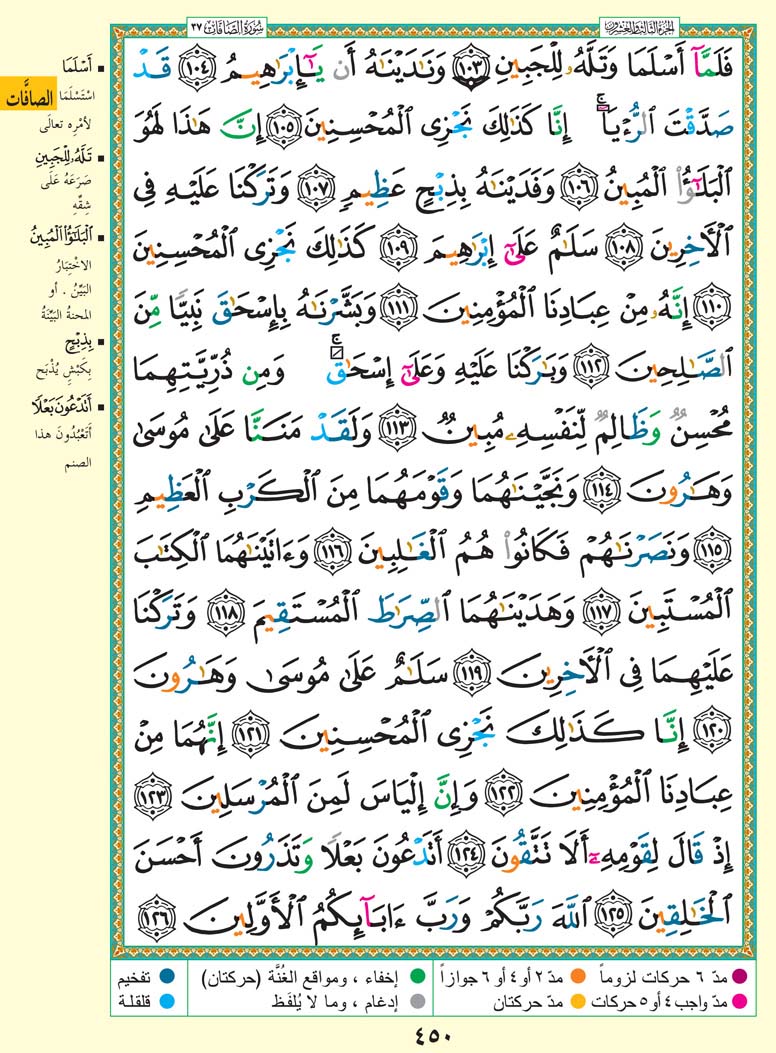 الجزء الثالث والعشرون
سورة الصافات ٣٧
فَلَمَّآ أَسْلَمَا وَتَلَّهُۥ لِلْجَبِينِ ١٠٣ وَنَٰدَيْنَٰهُ أَن يَٰٓإِبْرَٰهِيمُ ١٠٤ قَدْ
صَدَّقْتَ ٱلرُّءْيَآ ۚ إِنَّا كَذَٰلِكَ نَجْزِى ٱلْمُحْسِنِينَ ١٠٥ إِنَّ هَٰذَا لَهُوَ
ٱلْبَلَٰٓؤُا۟ ٱلْمُبِينُ ١٠٦ وَفَدَيْنَٰهُ بِذِبْحٍ عَظِيمٍ ١٠٧ وَتَرَكْنَا عَلَيْهِ فِى
ٱلْأَخِرِينَ ١٠٨ سَلَٰمٌ عَلَىٰٓ إِبْرَٰهِيمَ ١٠٩ كَذَٰلِكَ نَجْزِى ٱلْمُحْسِنِينَ
١١٠ إِنَّهُۥ مِنْ عِبَادِنَا ٱلْمُؤْمِنِينَ ١١١ وَبَشَّرْنَٰهُ بِإِسْحَٰقَ نَبِيًّا مِّنَ
ٱلصَّٰلِحِينَ ١١٢ وَبَٰرَكْنَا عَلَيْهِ وَعَلَىٰٓ إِسْحَٰقَ ۚ وَمِن ذُرِّيَّتِهِمَا
مُحْسِنٌ وَظَالِمٌ لِّنَفْسِهِۦ مُبِينٌ ١١٣ وَلَقَدْ مَنَنَّا عَلَىٰ مُوسَىٰ
وَهَٰرُونَ ١١٤ وَنَجَّيْنَٰهُمَا وَقَوْمَهُمَا مِنَ ٱلْكَرْبِ ٱلْعَظِيمِ
١١٥ وَنَصَرْنَٰهُمْ فَكَانُوا۟ هُمُ ٱلْغَٰلِبِينَ ١١٦ وَءَاتَيْنَٰهُمَا ٱلْكِتَٰبَ
ٱلْمُسْتَبِينَ ١١٧ وَهَدَيْنَٰهُمَا ٱلصِّرَٰطَ ٱلْمُسْتَقِيمَ ١١٨ وَتَرَكْنَا
عَلَيْهِمَا فِى ٱلْأَخِرِينَ ١١٩ سَلَٰمٌ عَلَىٰ مُوسَىٰ وَهَٰرُونَ
١٢٠ إِنَّا كَذَٰلِكَ نَجْزِى ٱلْمُحْسِنِينَ ١٢١ إِنَّهُمَا مِنْ
عِبَادِنَا ٱلْمُؤْمِنِينَ ١٢٢ وَإِنَّ إِلْيَاسَ لَمِنَ ٱلْمُرْسَلِينَ ١٢٣
إِذْ قَالَ لِقَوْمِهِۦٓ أَلَا تَتَّقُونَ ١٢٤ أَتَدْعُونَ بَعْلًا وَتَذَرُونَ أَحْسَنَ
ٱلْخَٰلِقِينَ ١٢٥ ٱللَّهَ رَبَّكُمْ وَرَبَّ ءَابَآئِكُمُ ٱلْأَوَّلِينَ ١٢٦
أَسْلَمَا
الصافّات
اسْتَسْلَمَا
لأمْرِه تعالَى
تَلَّهُۥ لِلْجَبِينِ
صَرَعَهُ عَلَى
شِقِّهِ
ٱلْبَلَٰٓؤُا۟ ٱلْمُبِينُ
الاخْتِبَارُ
البَيِّنُ . أو
المحنةُ البَيِّنَةُ
بِذِبْحٍ
بِكَبْشٍ يُذْبَح
أَتَدْعُونَ بَعْلًا
أتَعْبُدُونَ هذا
الصنم
مدّ ٦ حركات لزوماً
مدّ ٢ أو ٤ أو ٦ جوازاً
إخفاء ، ومواقع الغُنَّة (حركتان)
تفخيم
مدّ واجب ٤ أو ٥ حركات
مدّ حركتان
إدغام ، وما لا يُلفَظ
قلقلة
٤٥٠